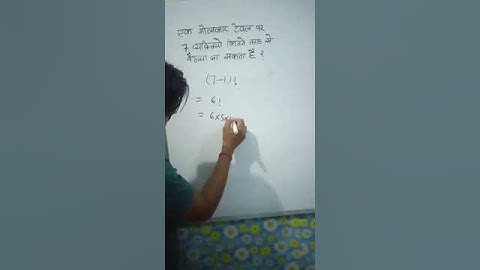 एक गोलाकार टेबल पर
7 व्यक्तियों कितने तरह से
बैठाया जा सकता है ?
(7-1)!
= 6!
= 6×5×